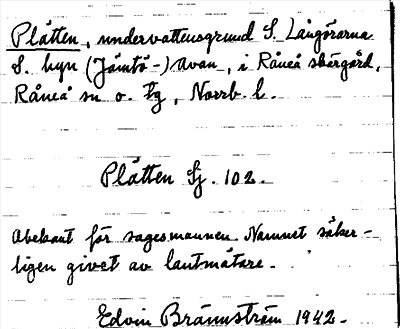 Plåtten, undervattensgrund S. Långörarna
S. byn (Jämtö-) Avan, i Råneå skärgård,
Råneå sn o. tg, Norrb. l.
Plåtten Sj. 102.
Obekant för sagesmannen. Namnet säker-
ligen givet av lantmätare.
Edvin Brännström 1942.